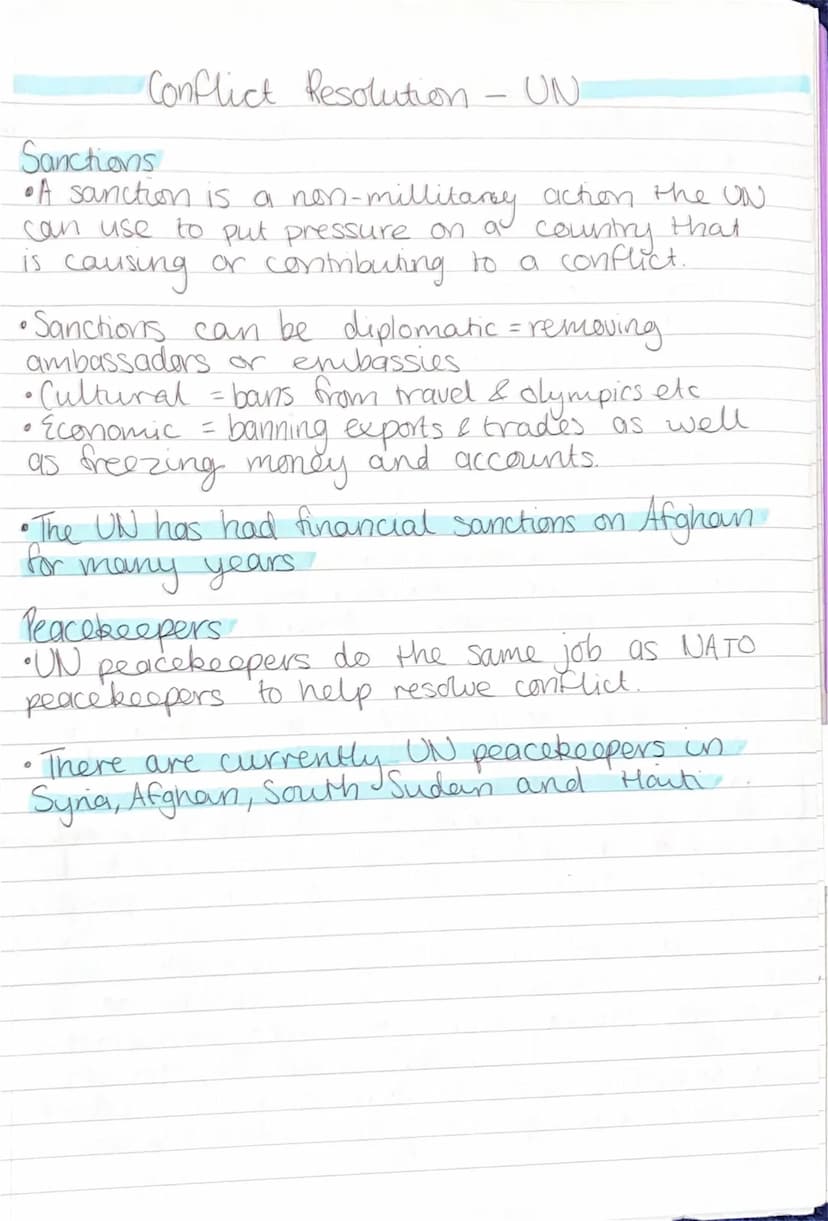 Conflict Resolution – UN
Sanctions
• A sanction is a non-millitary action the UN
can use to put pressure on a country that
is causing or contributing to a conflict.
• Sanctions can be diplomatic = removing
ambassadors or embassies
• Cultural = bans from travel & olympics etc
• Economic = banning exports & trades as well
as freezing money and accounts.
• The UN has had financial sanctions on Afghan
for many years
Peacekeepers
• UN peacekeepers do the same job as NATO
peacekeepers to help resolve conflict.
• There are currently UN peacekeepers in
Syria, Afghan, South Sudan and Haiti